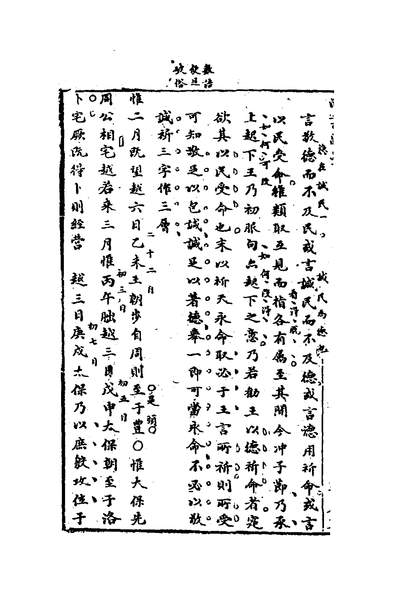 數語
便是
破俗
言敬德而不及民或言諴民而不及德或言德用祈命或言
以民受命雜類取互見而指各有屬至其間今冲子節乃承
上起下王乃初服句亦起下之意乃若勸王以德祈命者定
欲其以民受命也末以祈天永命取必于王言所祈則所受
可知敬足以包諴諴足以著德舉一即可當永命不必以敬
諴祈三字作三層
惟二月既望越六日乙未王朝步自周則至于豐〇惟太保先
二十二日
是頭
周公相宅越若來三月惟丙午朏越三日戊申太保朝至于洛
初三日
初五日
卜宅厥既得卜則經營 越三日庚戌太保乃以庶殷攻位于
初七日